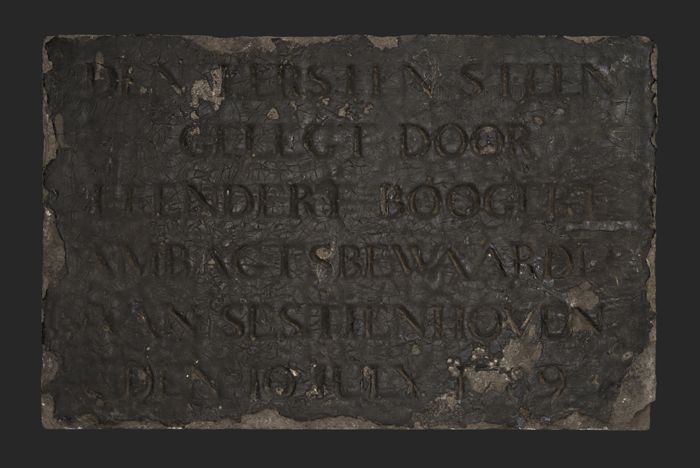 DEN EERSTEN STEEN
GELEGT DOOR
LEENDERT
AMBAGTSBEWAARDER
VAN SESTIENHOVEN
DEN 10 JULY